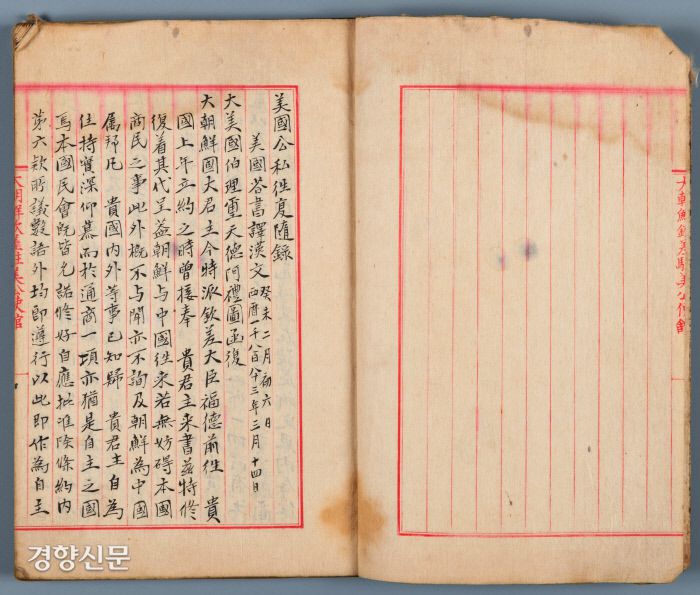 大朝鮮欽差駐美公使舘
美國公私往復隨錄
美國答書譯漢文 癸未二月初六日
西曆一千八百八十三年三月十四日
大美國伯理璽天德阿禮圖函復
大朝鮮國大君主今特派欽差大臣福德前往 貴
國上年立約之時曾接奉 貴君主來書茲特修
復着其代呈益朝鮮与中國往來若無妨碍本國
商民之事此外概不与聞亦不詢及朝鮮為中國
屬邦凡 貴國內外等事已知歸 貴君主自為
住持實深仰慕而於通商一項亦猶是自主之國
焉本國民會旣皆允諾修好自應批准除條約內
第六款所議數語外均即遵行以此即作為自主
大朝鮮欽差駐美公使館
경향신문